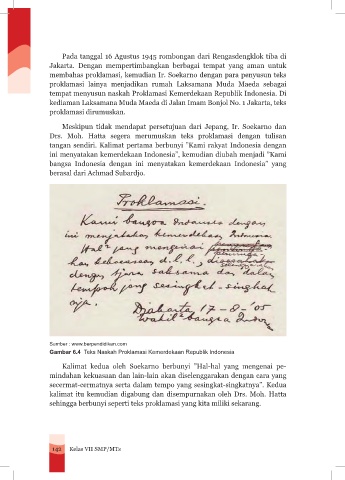 Pada tanggal 16 Agustus 1945 rombongan dari Rengasdengklok tiba di
Jakarta. Dengan mempertimbangkan berbagai tempat yang aman untuk
membahas proklamasi, kemudian Ir. Soekarno dengan para penyusun teks
proklamasi lainya menjadikan rumah Laksamana Muda Maeda sebagai
tempat menyusun naskah Proklamasi Kemerdekaan Republik Indonesia. Di
kediaman Laksamana Muda Maeda di Jalan Imam Bonjol No. 1 Jakarta, teks
proklamasi dirumuskan.
Meskipun tidak mendapat persetujuan dari Jepang, Ir. Soekarno dan
Drs. Moh. Hatta segera merumuskan teks proklamasi dengan tulisan
tangan sendiri. Kalimat pertama berbunyi "Kami rakyat Indonesia dengan
ini menyatakan kemerdekaan Indonesia", kemudian diubah menjadi "Kami
bangsa Indonesia dengan ini menyatakan kemerdekaan Indonesia" yang
berasal dari Achmad Subardjo.
Proklamasi.
Kami bangsa Indonesia dengan
ini menjatakan kemerdekaan Indonesia.
Hal² jang mengenai
kekoeasaan d.l.l.,
dengan tjara saksama dan dalam
tempoh jang sesingkat-singkat
nja.
Djakarta 17-8-'05
Wakil² bangsa Indonesia
Sumber : www.berpendidikan.com
Gambar 6.4 Teks Naskah Proklamasi Kemerdekaan Republik Indonesia
Kalimat kedua oleh Soekarno berbunyi "Hal-hal yang mengenai pe-
mindahan kekuasaan dan lain-lain akan diselenggarakan dengan cara yang
secermat-cermatnya serta dalam tempo yang sesingkat-singkatnya". Kedua
kalimat itu kemudian digabung dan disempurnakan oleh Drs. Moh. Hatta
sehingga berbunyi seperti teks proklamasi yang kita miliki sekarang.
142 Kelas VII SMP/MTs